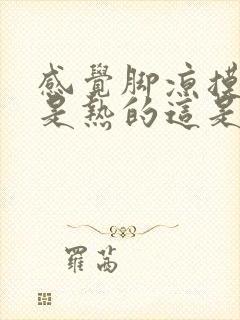 感覺脚凉摸
是熱的這是
羅茜